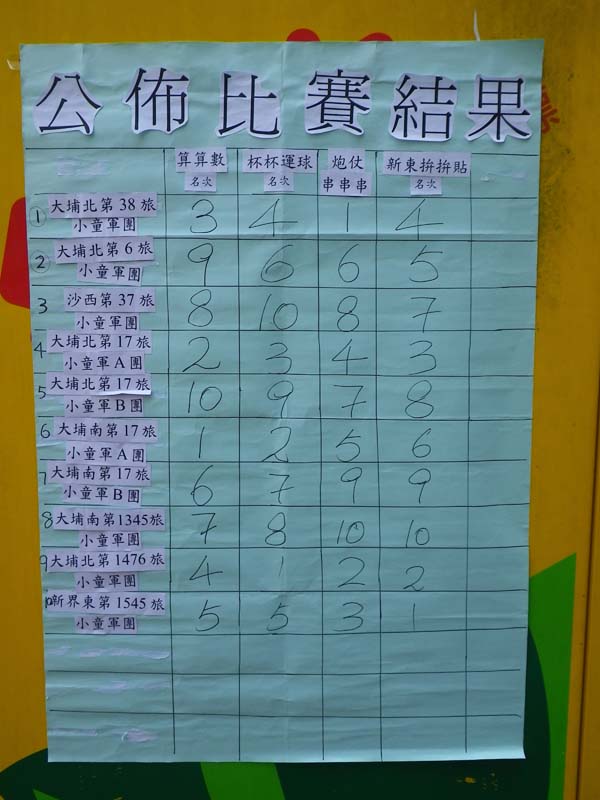 公佈比賽結果
算算數 杯杯運球 炮仗 新東拚拚貼
名次 名次 串串串 名次
1 大埔北第38旅 3 4 1 4
小童軍團
2 大埔北第6旅 9 6 6 5
小童軍團
3 沙西第37旅 8 10 8 7
小童軍團
4 大埔北第17旅 2 3 4 3
小童軍A團
5 大埔北第17旅 10 9 7 8
小童軍B團
6 大埔南第17旅 1 2 5 6
小童軍A團
7 大埔南第17旅 6 7 9 9
小童軍B團
8 大埔南第1345旅 7 8 10 10
小童軍團
9 大埔北第1476旅 4 1 2 2
小童軍團
10 新界東第1545旅 5 5 3 1
小童軍團